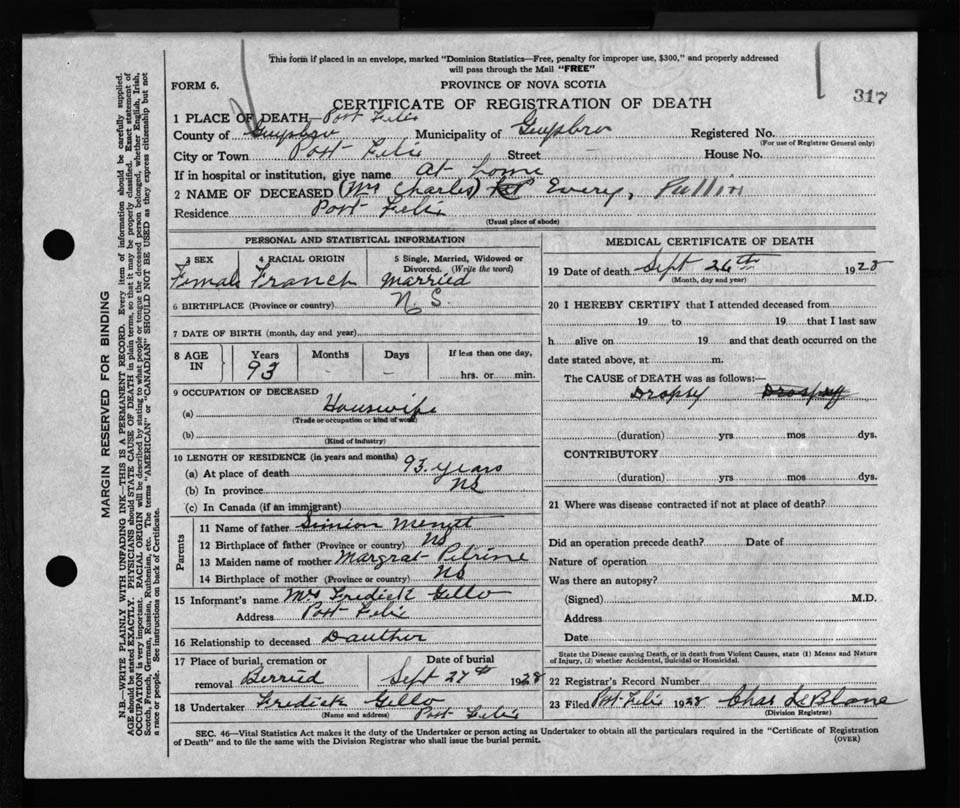 This form if placed in an envelope, marked "Dominion Statistics—Free, penalty for improper use, $300," and properly addressed
will pass through the Mail "FREE"
FORM 6.
PROVINCE OF NOVA SCOTIA
317
CERTIFICATE OF REGISTRATION OF DEATH
1 PLACE OF DEATH Port Felix
County of Guysboro Municipality of Guysboro Registered No.
(For use of Registrar General only)
City or Town Port Felix Street House No.
If in hospital or institution, give name At home
2 NAME OF DECEASED (Mrs Charles) Every, Pullin
Residence Port Felix
(Usual place of abode)
MARGIN RESERVED FOR BINDING
N.B.—WRITE PLAINLY WITH UNFADING INK—THIS IS A PERMANENT RECORD. Every item of information should be carefully supplied.
AGE should be stated EXACTLY. PHYSICIANS should STATE CAUSE OF DEATH in plain terms, so that it may be properly classified. Exact statement of
OCCUPATION is very important. RACIAL ORIGIN will be described by stating to what people or tongue the deceased person belonged, whether English, Irish,
Scotch, French, German, Russian, Ruthenian, etc. The terms "AMERICAN" or "CANADIAN" SHOULD NOT BE USED as they express citizenship but not
a race or people. See instructions on back of Certificate.
PERSONAL AND STATISTICAL INFORMATION
3 SEX
4 RACIAL ORIGIN
5 Single, Married, Widowed or
Divorced. (Write the word)
Female Franch Married
6 BIRTHPLACE (Province or country) N. S.
7 DATE OF BIRTH (month, day and year)
8 AGE
IN
Years Months Days If less than one day,
93 - - hrs. or min.
9 OCCUPATION OF DECEASED
(a) Houswife
(Trade or occupation or kind of work)
(b)
(Kind of Industry)
10 LENGTH OF RESIDENCE (in years and months)
(a) At place of death 93 years
(b) In province NS
(c) In Canada (if an immigrant)
Parents
11 Name of father Simion
12 Birthplace of father (Province or country) NS
13 Maiden name of mother Margrat Pelrine
14 Birthplace of mother (Province or country) NS
15 Informant's name Mrs Fredick Gello
Address Port Felix
16 Relationship to deceased Dauther
17 Place of burial, cremation or
removal Berried
Date of burial
Sept 27th 1928
18 Undertaker Fredick Gello
(Name and address) Port Felix
MEDICAL CERTIFICATE OF DEATH
19 Date of death Sept 26th 1928
(Month, day and year)
20 I HEREBY CERTIFY that I attended deceased from
19 to 19 that I last saw
h alive on 19 and that death occurred on the
date stated above, at m.
The CAUSE of DEATH was as follows:—
Dropsy Drospsy
(duration) yrs mos dys.
CONTRIBUTORY
(duration) yrs mos dys.
21 Where was disease contracted if not at place of death?
Did an operation precede death? Date of
Nature of operation
Was there an autopsy?
(Signed) M.D.
Address
Date
State the Disease causing Death, or in death from Violent Causes, state (1) Means and Nature
of Injury, (2) whether Accidental, Suicidal or Homicidal.
22 Registrar's Record Number
23 Filed Port Felix 1928 Chas LeBlanc
(Division Registrar)
SEC. 46—Vital Statistics Act makes it the duty of the Undertaker or person acting as Undertaker to obtain all the particulars required in the "Certificate of Registration
of Death" and to file the same with the Division Registrar who shall issue the burial permit.
(OVER)